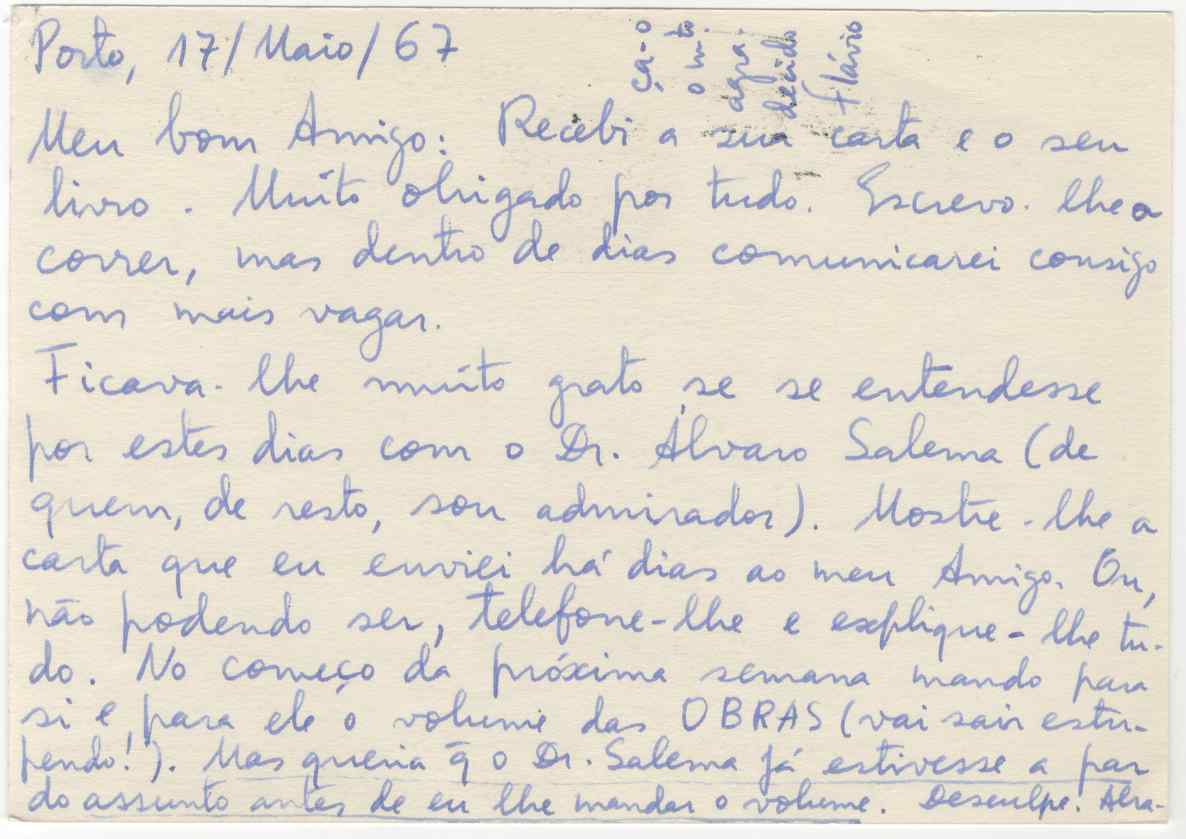 Porto, 17/Maio/67
Meu bom Amigo: Recebi a sua carta e o seu
livro. Muito obrigado por tudo. Escrevo-lhe a
correr, mas dentro de dias comunicarei consigo
com mais vagar.
Ficava-lhe muito grato se se entendesse
por estes dias com o Dr. Álvaro Salema (de
quem, de resto, sou admirador). Mostre-lhe a
carta que eu enviei há dias ao meu Amigo. Ou,
não podendo ser, telefone-lhe e explique-lhe tu-
do. No começo da próxima semana mando para
si e para ele o volume das OBRAS (vai sair estu-
pendo!). Mas queria q̄ o Dr. Salema já estivesse a par
do assunto antes de eu lhe mandar o volume. Desculpe. Abra-
ça-o
o mto.
agra-
decido
Flávio